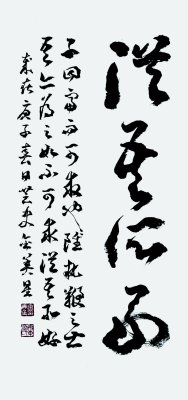 從吾所好
子曰富而可求也雖執鞭之士
吾亦為之如不可求從吾所好
歲在庚子春日